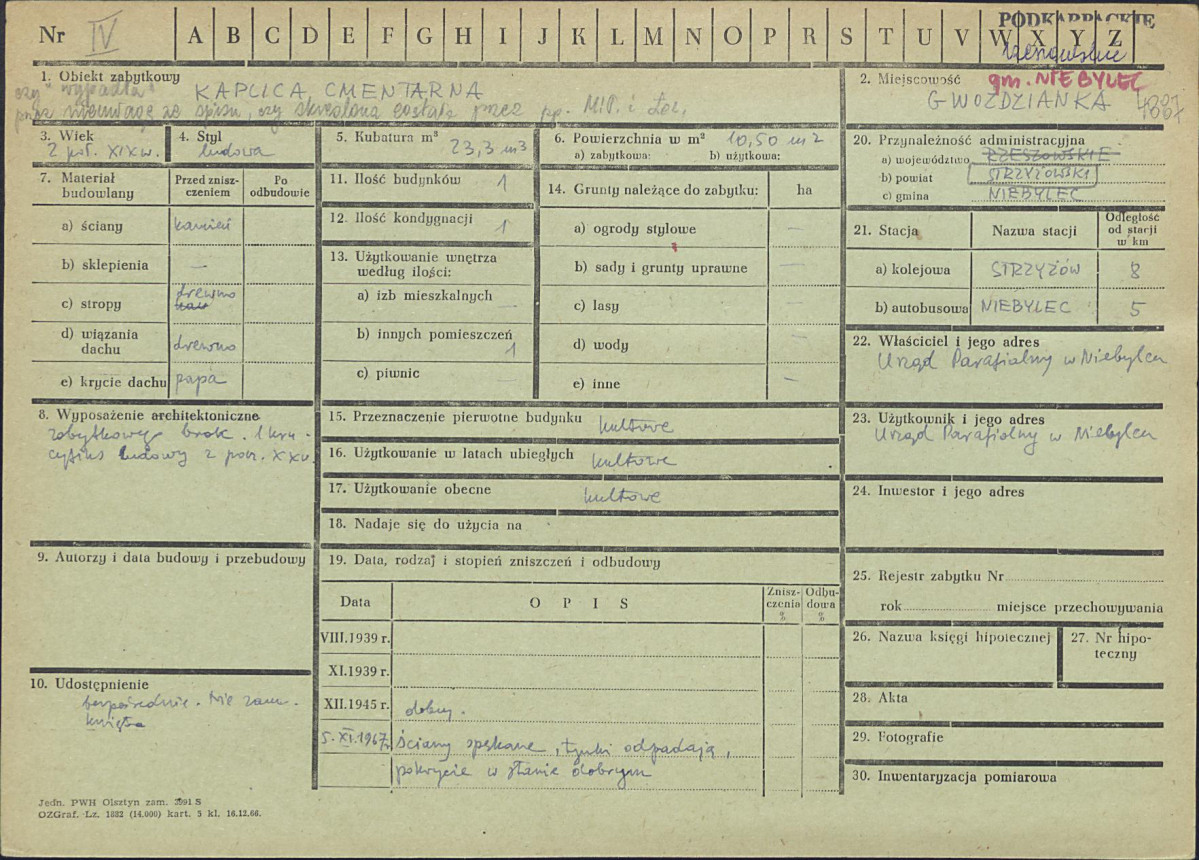 Nr IV A B C D E F G H I J K L M N O P R S T U V W X Y Z
PODKARPACKIE
rzeszowskie
1. Obiekt zabytkowy
KAPLICA CMENTARNA
czy "wypadła"
przez nieuwagę ze spisu, czy skreślona została przez pp.
2. Miejscowość
gm. NIEBYLEC
GWOŹDZIANKA
4887
3. Wiek
2 poł. XIX w.
4. Styl
ludowa
5. Kubatura m³
23,3 m3
6. Powierzchnia w m² 10,50 m2
a) zabytkowa: b) użytkowa:
7. Materiał budowlany
Przed zniszczeniem
Po odbudowie
a) ściany kamień
b) sklepienia —
c) stropy drewno
d) wiązania dachu drewno
e) krycie dachu papa
8. Wyposażenie architektoniczne
zabytkowego brak. 1 kru-
cyfiks ludowy z pocz. XX w.
9. Autorzy i data budowy i przebudowy
10. Udostępnienie
bezpośrednie. Nie zam-
knięta
11. Ilość budynków 1
12. Ilość kondygnacji 1
13. Użytkowanie wnętrza według ilości:
a) izb mieszkalnych —
b) innych pomieszczeń 1
c) piwnic —
14. Grunty należące do zabytku: ha
a) ogrody stylowe —
b) sady i grunty uprawne —
c) lasy —
d) wody —
e) inne —
15. Przeznaczenie pierwotne budynku kultowe
16. Użytkowanie w latach ubiegłych kultowe
17. Użytkowanie obecne kultowe
18. Nadaje się do użycia na
19. Data, rodzaj i stopień zniszczeń i odbudowy
Data OPIS Zniszczenia % Odbudowa %
VIII.1939 r.
XI.1939 r.
XII.1945 r. dobry.
5.XI.1967r. ściany spękane, tynki odpadają,
pokrycie w stanie dobrym
20. Przynależność administracyjna
a) województwo RZESZOWSKIE
b) powiat STRZYŻOWSKI
c) gmina NIEBYLEC
21. Stacja Nazwa stacji Odległość od stacji w km
a) kolejowa STRZYŻÓW 8
b) autobusowa NIEBYLEC 5
22. Właściciel i jego adres
Urząd Parafialny w Niebylcu
23. Użytkownik i jego adres
Urząd Parafialny w Niebylcu
24. Inwestor i jego adres
25. Rejestr zabytku Nr
rok miejsce przechowywania
26. Nazwa księgi hipotecznej
27. Nr hipoteczny
28. Akta
29. Fotografie
30. Inwentaryzacja pomiarowa
Jedn. PWH Olsztyn zam. 3991 S
OZGraf. Lz. 1882 (14.000) kart. 5 kl. 16.12.66.